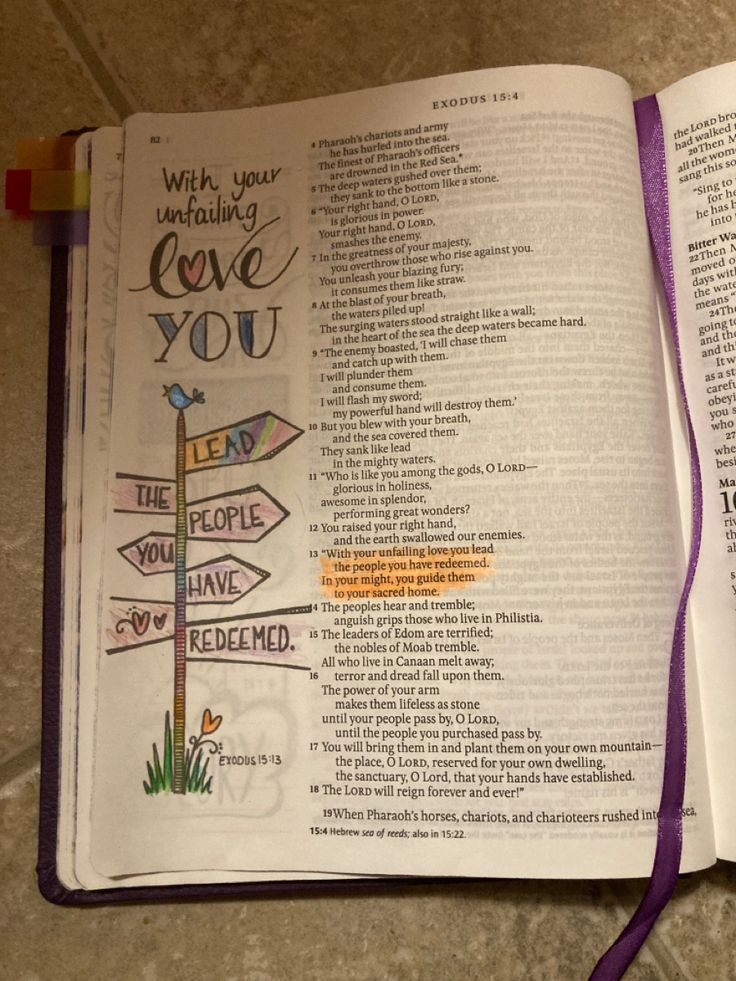 EXODUS 15:4
82
With your
unfailing
love
YOU
LEAD
THE
PEOPLE
YOU
HAVE
REDEEMED.
EXODUS 15:13
4 Pharaoh's chariots and army
he has hurled into the sea.
The finest of Pharaoh's officers
are drowned in the Red Sea.*
5 The deep waters gushed over them;
they sank to the bottom like a stone.
6 “Your right hand, O LORD,
is glorious in power.
Your right hand, O LORD,
smashes the enemy.
7 In the greatness of your majesty,
you overthrow those who rise against you.
You unleash your blazing fury;
it consumes them like straw.
8 At the blast of your breath,
the waters piled up!
The surging waters stood straight like a wall;
in the heart of the sea the deep waters became hard.
9 “The enemy boasted, ‘I will chase them
and catch up with them.
I will plunder them
and consume them.
I will flash my sword;
my powerful hand will destroy them.’
10 But you blew with your breath,
and the sea covered them.
They sank like lead
in the mighty waters.
11 “Who is like you among the gods, O LORD—
glorious in holiness,
awesome in splendor,
performing great wonders?
12 You raised your right hand,
and the earth swallowed our enemies.
13 “With your unfailing love you lead
the people you have redeemed.
In your might, you guide them
to your sacred home.
14 The peoples hear and tremble;
anguish grips those who live in Philistia.
15 The leaders of Edom are terrified;
the nobles of Moab tremble.
All who live in Canaan melt away;
16 terror and dread fall upon them.
The power of your arm
makes them lifeless as stone
until your people pass by, O LORD,
until the people you purchased pass by.
17 You will bring them in and plant them on your own mountain—
the place, O LORD, reserved for your own dwelling,
the sanctuary, O Lord, that your hands have established.
18 The LORD will reign forever and ever!”
19 When Pharaoh's horses, chariots, and charioteers rushed into sea,
15:4 Hebrew sea of reeds; also in 15:22.
the LORD bro
had walked
20 Then M
all the wom
sang this so
“Sing to
for he
he has h
into
Bitter Wa
22 Then M
moved o
days with
the wate
means “
24 The
going to
and the
and th
It w
as a st
caref
obeyi
you s
who
27
whe
besi
Ma